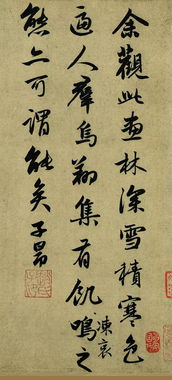 余觀此畫林深雪積寒色
逼人羣烏翔集有飢凍哀鳴之
態亦可謂能矣子昂